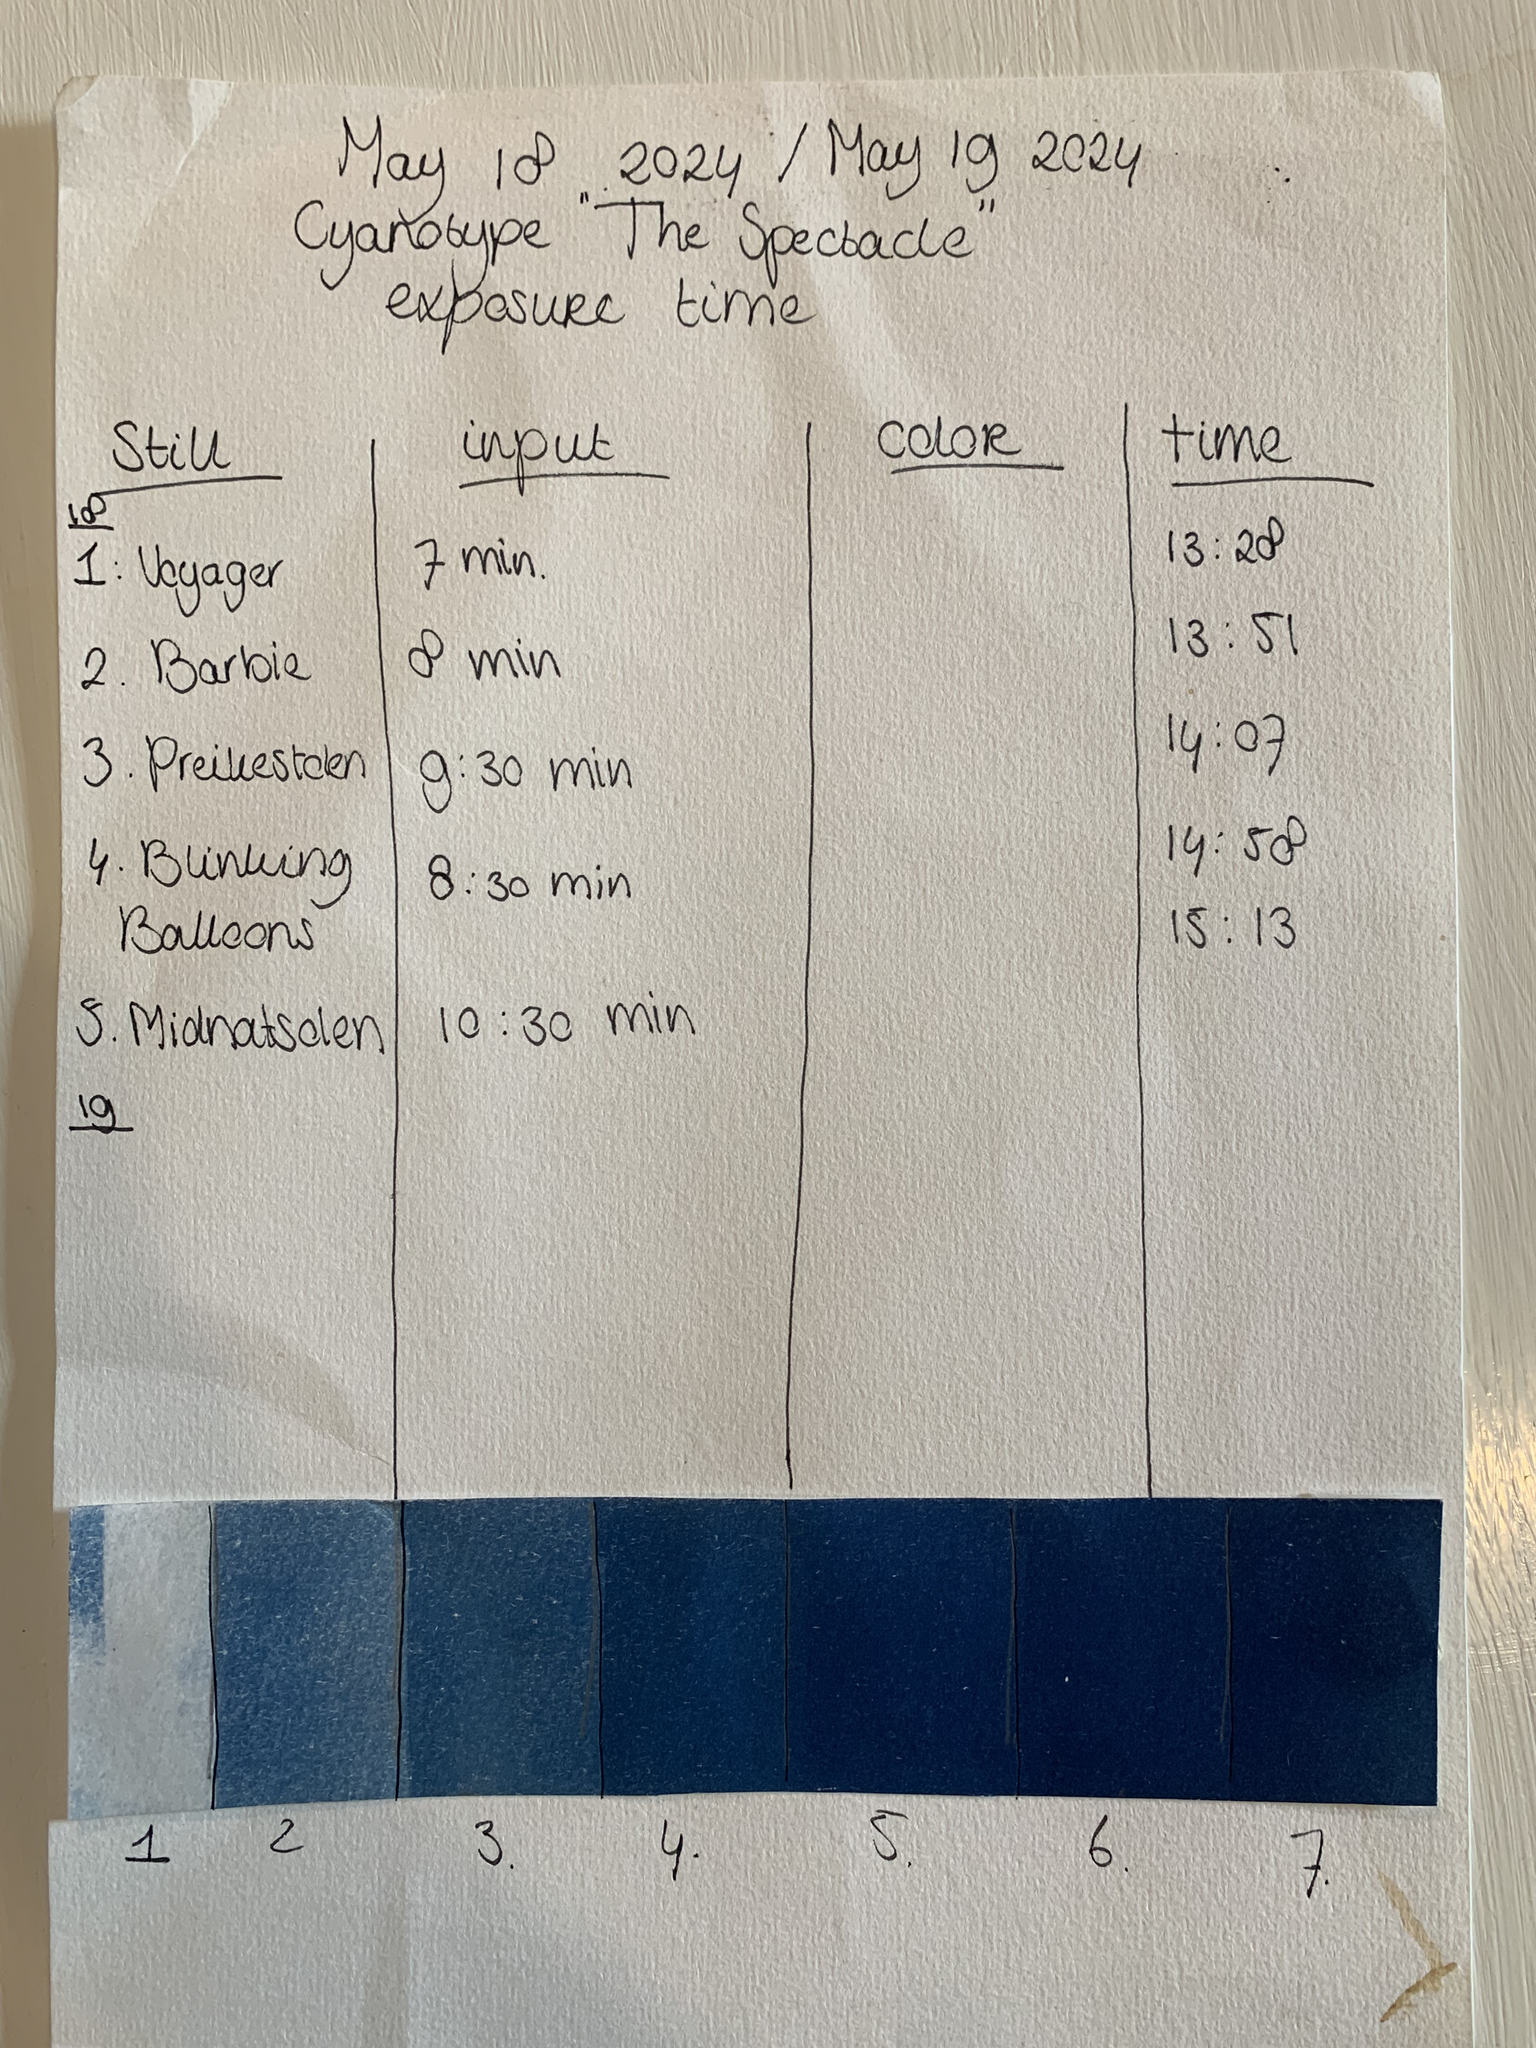 May 18 2024 / May 19 2024
Cyanotype "The Spectacle"
exposure time
Still input color time
18
1: Voyager 7 min. 13:28
2. Barbie 8 min 13:51
3. Preikestolen 9:30 min 14:07
4. Blinking 8:30 min 14:58
Balloons 15:13
5. Midnatsolen 10:30 min
19
1 2 3. 4. 5. 6. 7.